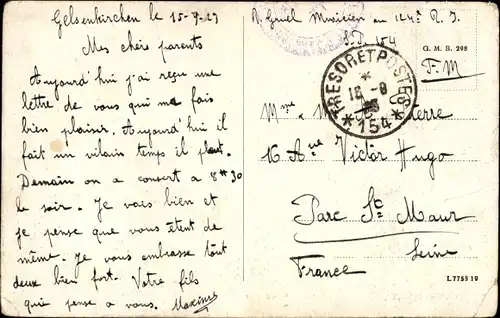 Gelsenkirchen le 15-8-23
Mes chers parents
Aujourd'hui j'ai reçu une
lettre de vous qui ma fais
bien plaisir. Aujourd'hui il
fait un vilain temps il pleut.
Demain on a consert a 8H30
le soir. Je vais bien et
je pense que vous êtent de
même. Je vous embrasse tout
deux bien fort. Votre fils
qui pense a vous. Maxime
Musicien au 124e R. I.
S.P. 154
G. M. B. 298
F. M
TRESOR ET POSTES
16 - 8
* 154 *
Mme
Ave Victor Hugo
Parc St Maur
Seine
France
L 7755 19